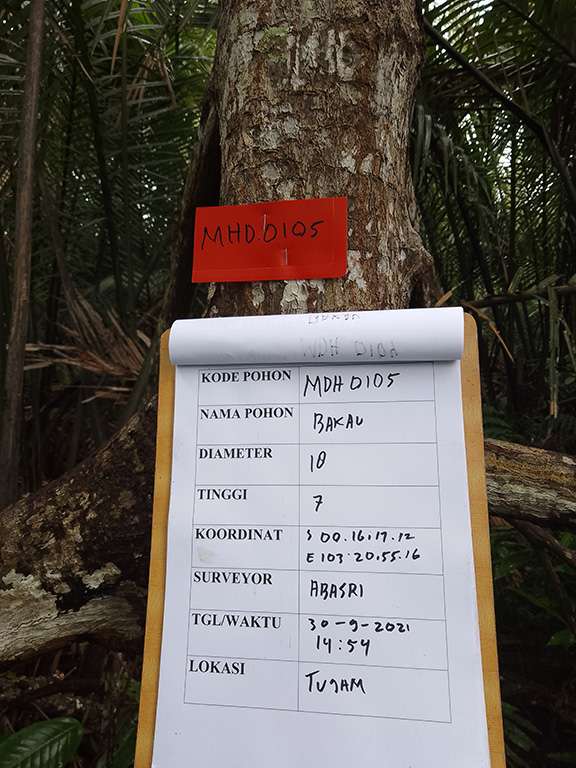 MHD.0105
KODE POHON MDH 0105
NAMA POHON BAKAU
DIAMETER 18
TINGGI 7
KOORDINAT S 00.16.17.12
E 103.20.55.16
SURVEYOR ABASRI
TGL/WAKTU 30-9-2021
14:54
LOKASI TUJAM